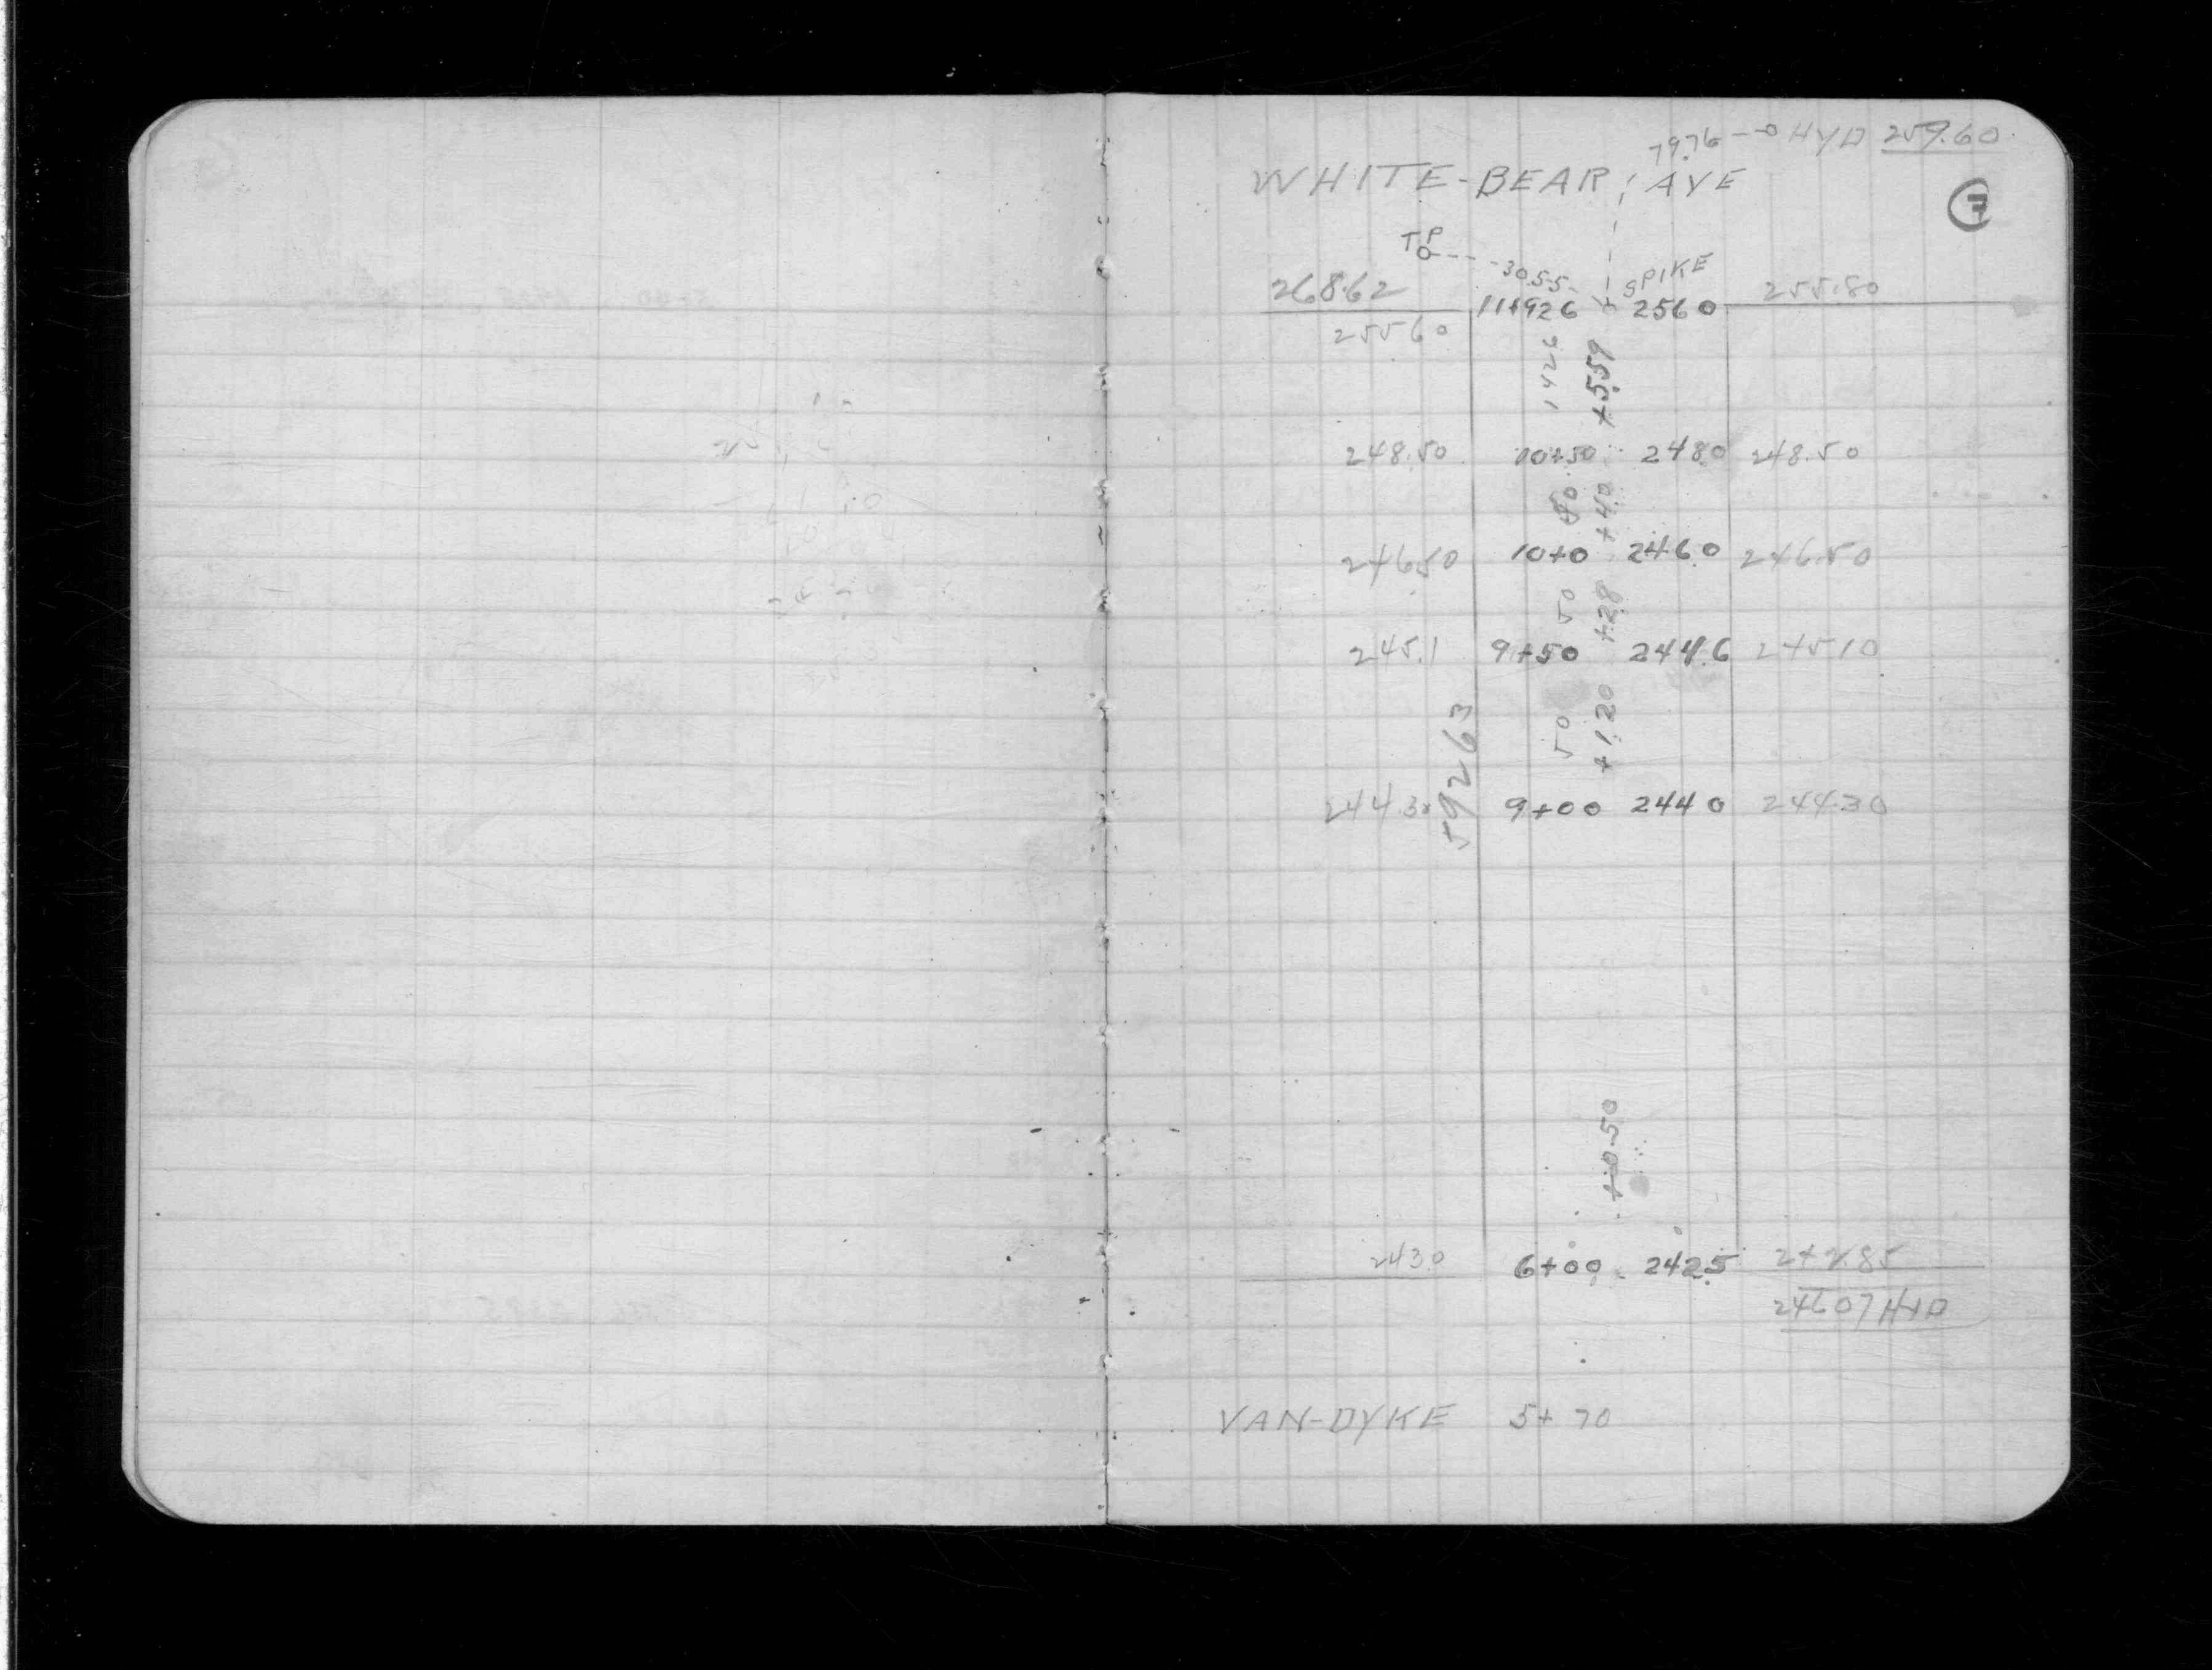 79.76 --o HYD 259.60
WHITE-BEAR AVE
7
TP
o---- 30.55- SPIKE
268.62 11+92.6 256.0 255.80
255.60
142.6 +5.59
248.50 10+50 248.0 248.50
50 +4.0
246.50 10+0 246.0 246.50
50 +2.8
245.1 9+50 244.6 245.10
50 +1.20
592.63
244.30 9+00 244.0 244.30
+0.50
243.0 6+00 242.5 242.85
246.07 HYD
VAN-DYKE 5+70